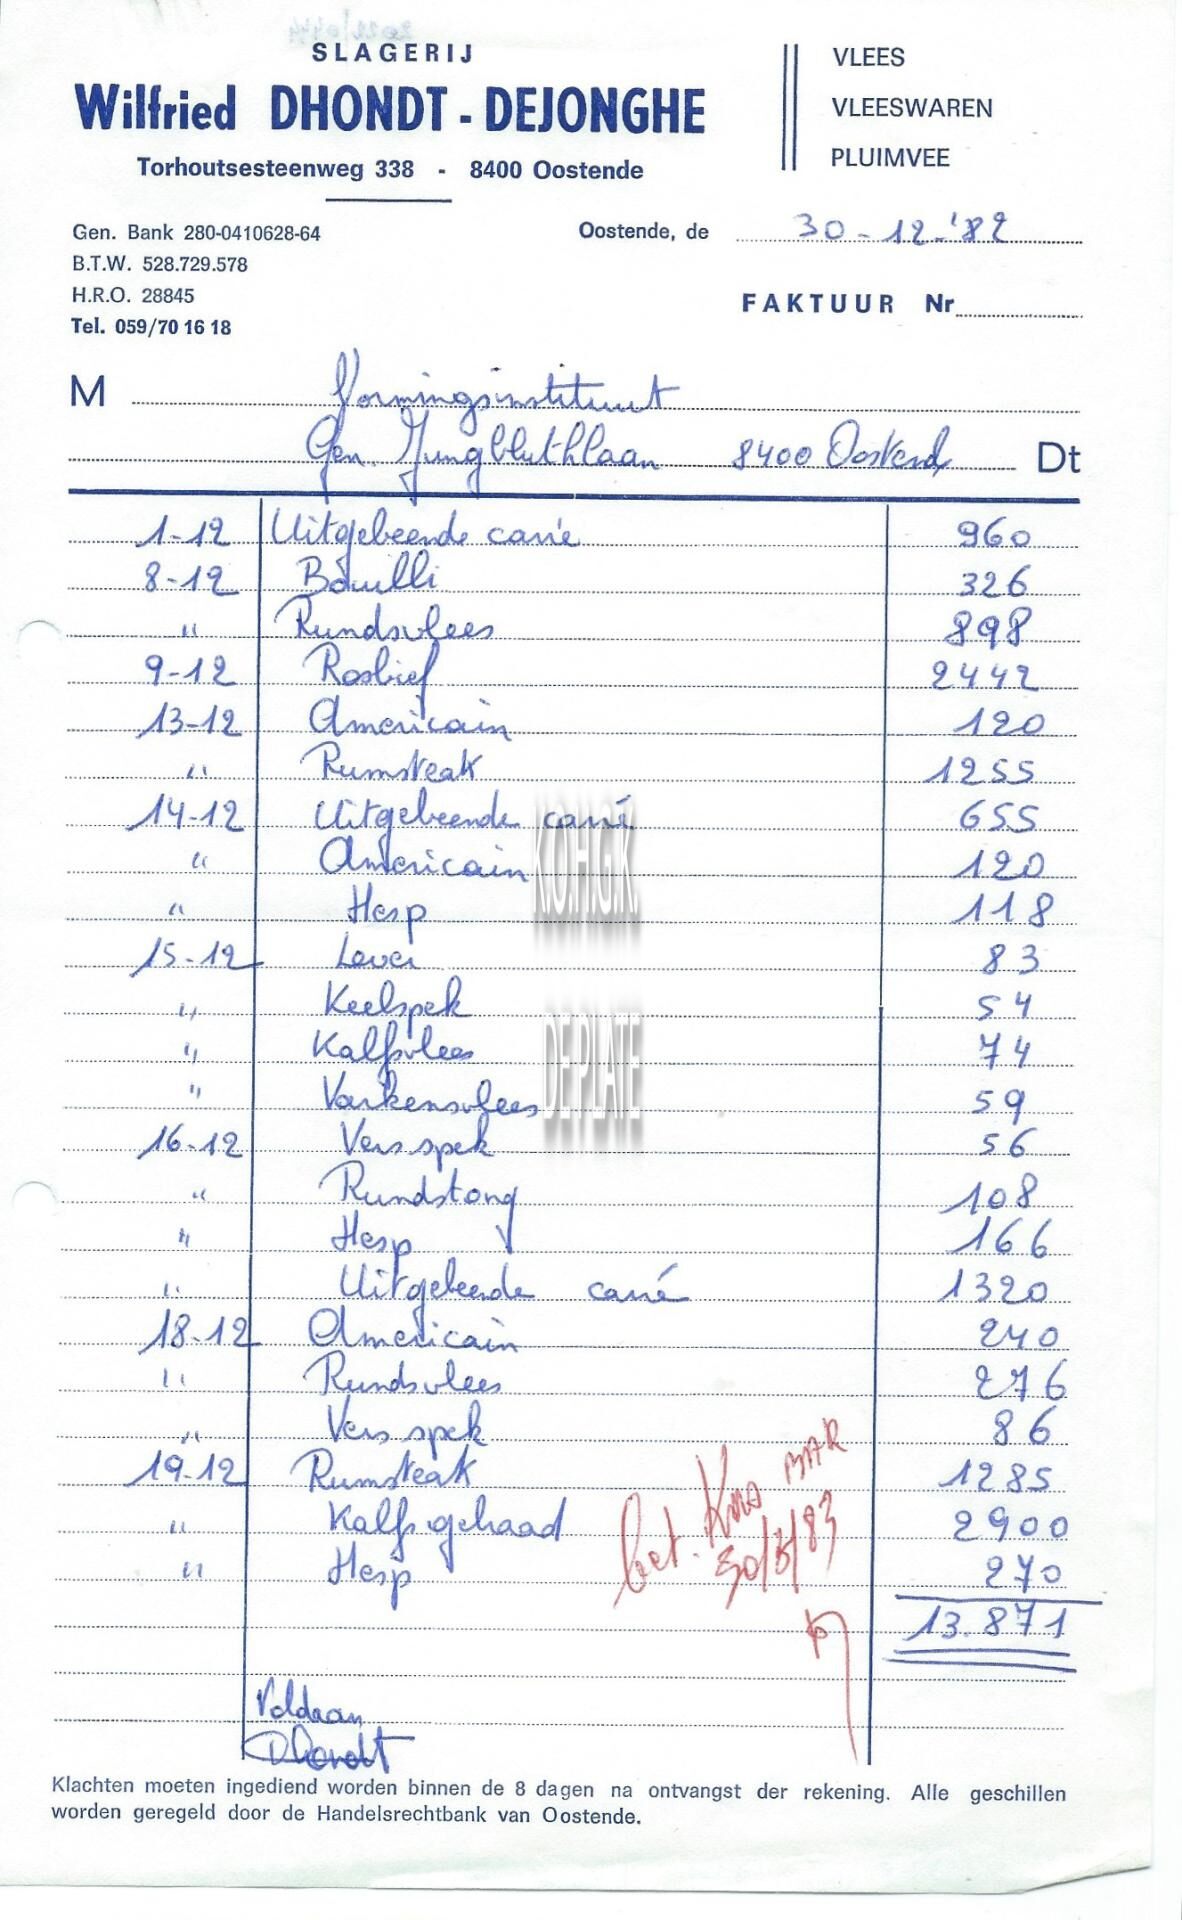 SLAGERIJ
Wilfried DHONDT - DEJONGHE
Torhoutsesteenweg 338 - 8400 Oostende
VLEES
VLEESWAREN
PLUIMVEE
Gen. Bank 280-0410628-64
B.T.W. 528.729.578
H.R.O. 28845
Tel. 059/70 16 18
Oostende, de 30-12-'82
FAKTUUR Nr
M Vormingsinstituut
Gen. Jungbluthlaan 8400 Oostend Dt
1-12 Uitgebeende carré 960
8-12 Bouilli 326
" Rundsvlees 898
9-12 Rosbief 2442
13-12 Americain 120
" Rumsteak 1255
14-12 Uitgebeende carré 655
" Americain 120
" Hesp 118
15-12 Lever 83
" Keelspek 54
" Kalfsvlees 74
" Varkensvlees 59
16-12 Vers spek 56
" Rundstong 108
" Hesp 166
" Uitgebeende carré 1320
18-12 Americain 240
" Rundsvlees 276
" Vers spek 86
19-12 Rumsteak 1285
" Kalfsgebraad 2900
" Hesp 270
13.871
bet. Kas
Voldaan
Dhondt
Klachten moeten ingediend worden binnen de 8 dagen na ontvangst der rekening. Alle geschillen
worden geregeld door de Handelsrechtbank van Oostende.
K.O.H.G.K.
DE PLATE